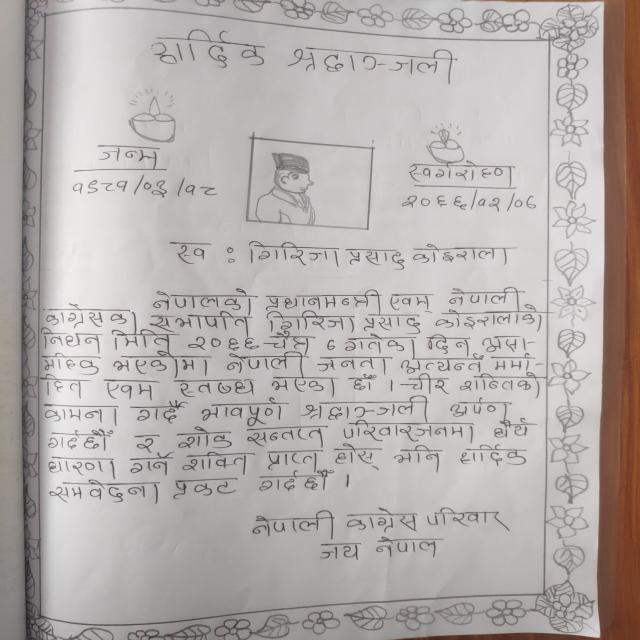 हार्दिक श्रद्धाञ्जली
जन्म
१९८१/०३/१८
स्वर्गारोहण
२०६६/१२/०७
स्व : गिरिजा प्रसाद कोइराला
नेपालको प्रधानमन्त्री एवम् नेपाली
काग्रेसका सभापति गिरिजा प्रसाद कोइरालाको
निधन मिति २०६६ चैत्र ७ गतेका दिन असा-
महिक भएकोमा नेपाली जनता अत्यन्तै मर्मा-
हित एवम हतब्धध भएका छौं । चीर शान्तिको
कामना गर्दै भावपूर्ण श्रद्धाञ्जली अर्पण
गर्दछौं र शोक सन्तप्त परिवारजनमा धैर्य
धारणा गर्ने शक्ति प्राप्त होस् भनि हार्दिक
समवेदना प्रकट गर्दछौं ।
नेपाली काग्रेस परिवार
जय नेपाल